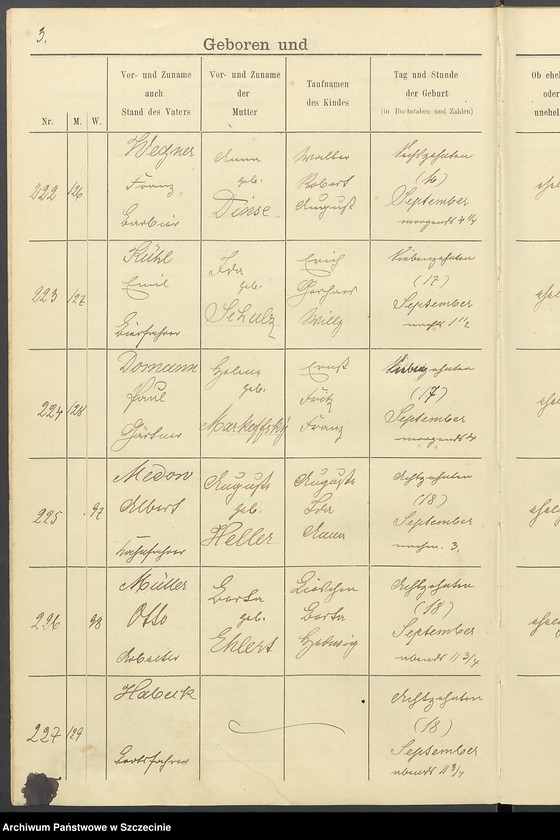 3.
Geboren und
Nr.
M.
W.
Vor- und Zuname
auch
Stand des Vaters
Vor- und Zuname
der
Mutter
Taufnamen
des Kindes
Tag und Stunde
der Geburt
(in Buchstaben und Zahlen)
Ob ehel
oder
unehel
222
126
Wegner
Franz
Barbier
Anna
geb.
Dinse
Walter
Robert
August
Sechzehnten
(16)
September
morgends 4 1/4
ehel
223
127
Kühl
Emil
Bierfahrer
Ida
geb.
Schulz
Erich
Gerhard
Willy
Siebenzehnten
(17)
September
nachts 1 1/2
ehel
224
128
Domann
Paul
Gärtner
Helene
geb.
Ernst
Fritz
Franz
Siebenzehnten
(17)
September
morgends 4
ehel
225
97
Medow
Albert
Kahnfahrer
Auguste
geb.
Heller
Auguste
Ida
Anna
Achtzehnten
(18)
September
nachm. 3.
ehel
226
98
Müller
Otto
Arbeiter
Berta
geb.
Ehlert
Lieschen
Berta
Hedwig
Achtzehnten
(18)
September
abends 11 3/4
ehel
227
129
Habuck
Achtzehnten
(18)
September
abends 11 3/4
Archiwum Państwowe w Szczecinie